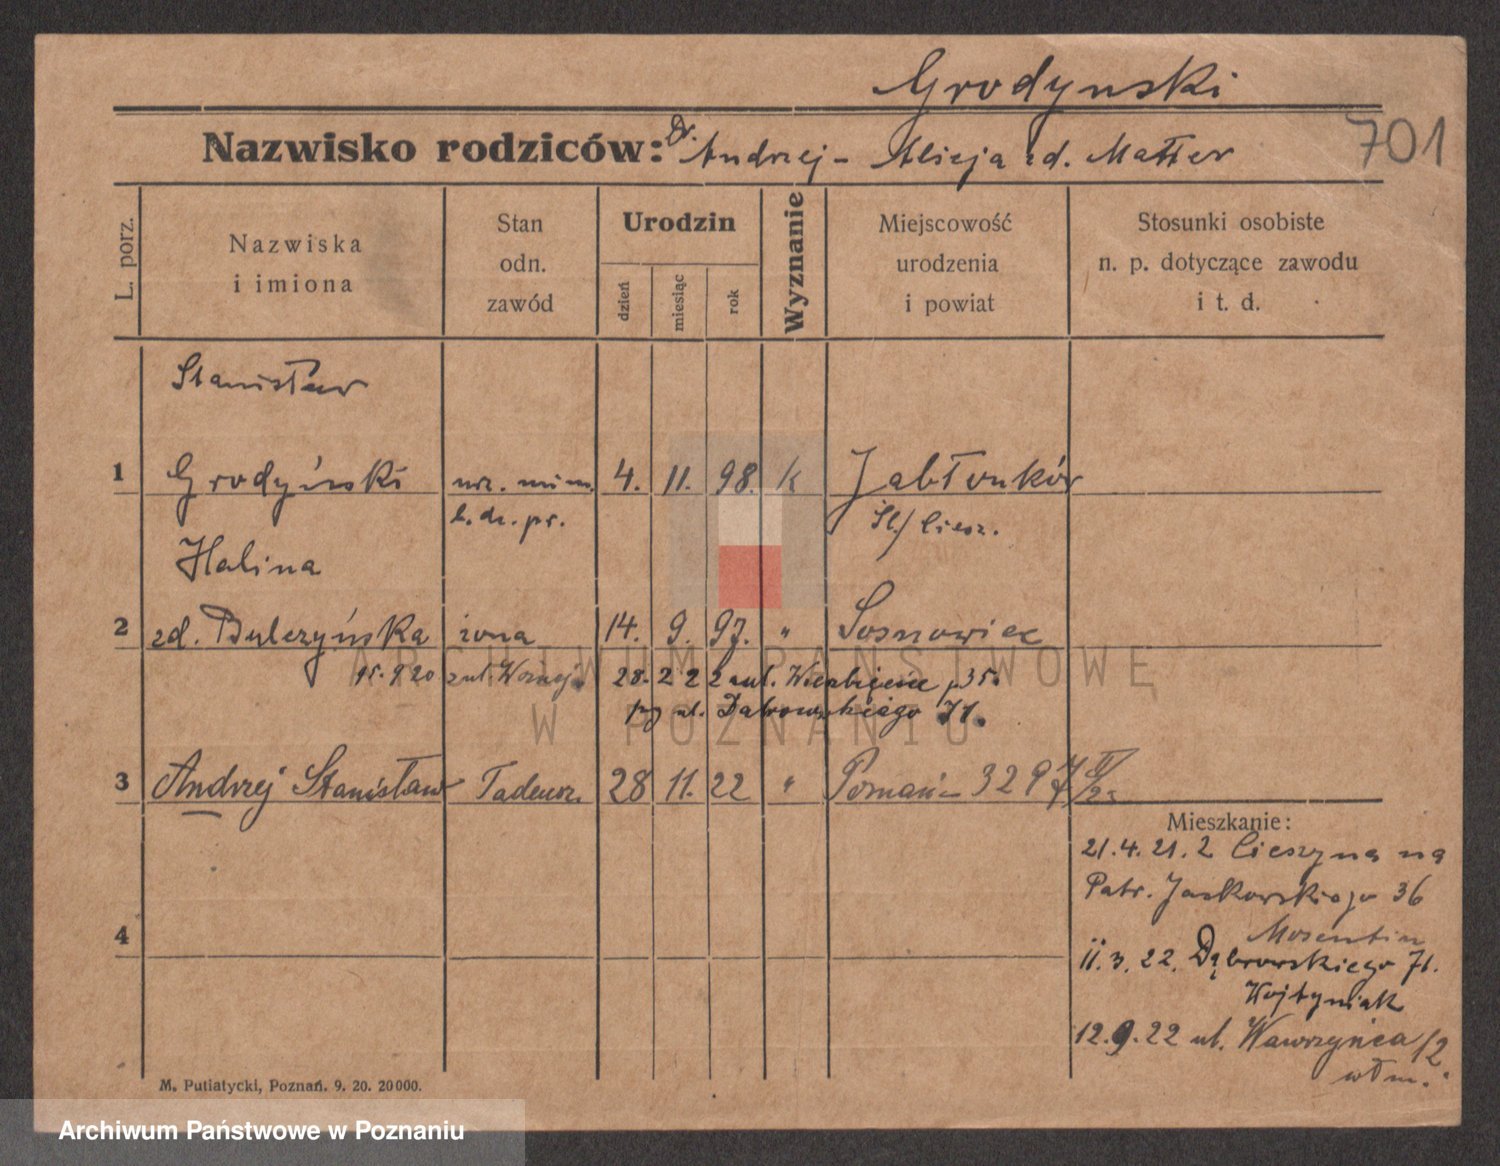 Grodynski
701
Nazwisko rodziców: Dr. Andrzej - Alicja zd. Matter
L. porz.
Nazwiska
i imiona
Stan
odn.
zawód
Urodzin
dzień
miesiąc
rok
Wyznanie
Miejscowość
urodzenia
i powiat
Stosunki osobiste
n. p. dotyczące zawodu
i t. d.
Stanisław
1 Grodyński urz. 4. 11. 98. k Jabłonków
b. dz. pr. Śl./Ciesz.
Halina
2 zd. żona 14. 9. 97. " Sosnowiec
15.9.20 z ul. 28. 2 22 z ul. 35.
ul. Dąbrowskiego 71.
3 Andrzej Stanisław Tadeusz 28 11. 22 " Poznań - 3297
Mieszkanie:
21.4.21. z Cieszyna na
Patr. Jackowskiego 36
4
11.3.22. Dąbrowskiego 71.
Wojtyniak
12.9.22 ul. Wawrzyńca
M. Putiatycki, Poznań. 9. 20. 20000.
ARCHIWUM PAŃSTWOWE
W POZNANIU
Archiwum Państwowe w Poznaniu